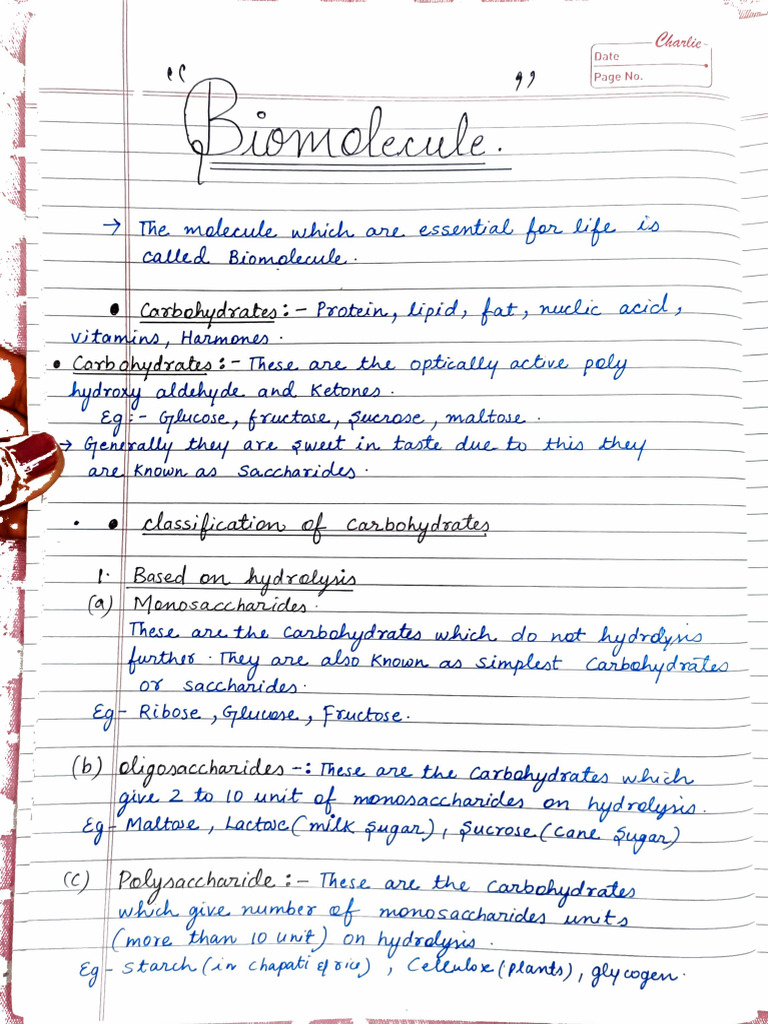 Charlie
Date
Page No.
"Biomolecule."
→ The molecule which are essential for life is
called Biomolecule.
• Carbohydrates :- Protein, lipid, fat, nuclic acid,
vitamins, Harmones.
• Carbohydrates :- These are the optically active poly
hydroxy aldehyde and Ketones.
Eg :- Glucose, fructose, sucrose, maltose.
→ Generally they are sweet in taste due to this they
are known as saccharides.
• • classification of carbohydrates
1. Based on hydrolysis
(a) Monosaccharides.
These are the carbohydrates which do not hydrolysis
further. They are also known as simplest carbohydrates
or saccharides.
Eg - Ribose, Glucose, Fructose.
(b) oligosaccharides -: These are the carbohydrates which
give 2 to 10 unit of monosaccharides on hydrolysis.
Eg - Maltose, Lactose (milk sugar), Sucrose (cane sugar)
(c) Polysaccharide :- These are the carbohydrates
which give number of monosaccharides units
(more than 10 unit) on hydrolysis.
Eg - starch (in chapati & rice), Cellulose (plants), glycogen.